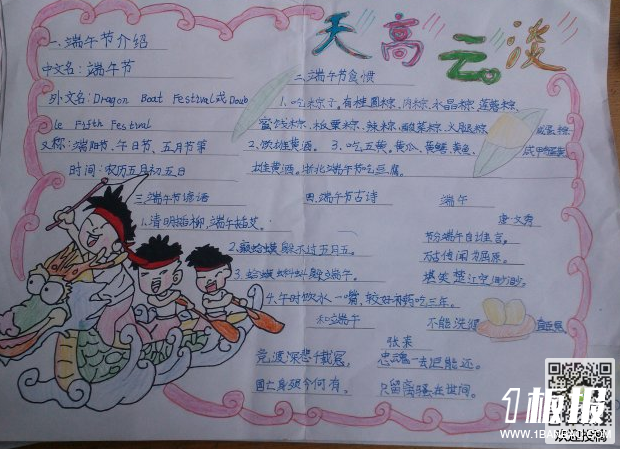 天高云淡
一、端午节介绍
中文名：端午节
外文名：Dragon Boat Festival或Doub
le Fifth Festival
又称：端阳节、午日节、五月节等
时间：农历五月初五日
二、端午节食俗
1、吃粽子。有桂圆粽、肉粽、水晶粽、莲蓉粽、
蜜饯粽、板栗粽、辣粽、酸菜粽、火腿粽、
咸蛋粽
2、饮雄黄酒。 3、吃五黄、黄瓜、黄鳝、黄鱼、
咸鸭蛋黄
雄黄酒。 吃豆腐。
三、端午节谚语
1、清明插柳，端午插艾。
2、癞蛤蟆躲不过五月五。
3、蛤蟆蝌蚪躲端午。
4、午时饮水一嘴，较好补药吃三年。
四、端午节古诗
端午
唐 文秀
节分端午自谁言，
万古传闻为屈原。
堪笑楚江空渺渺，
不能洗得直臣冤
和端午
张耒
竞渡深悲千载冤，
忠魂一去讵能还。
国亡身殒今何有，
只留离骚在世间。
1板报
WWW.1BANBAO.COM